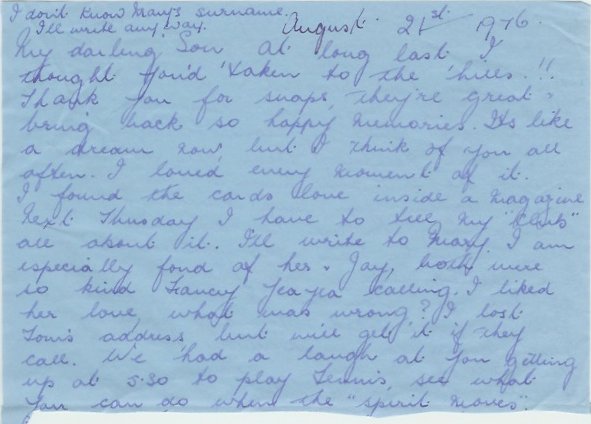 I don't know Mary's surname.
I'll write any way.
August 21st 1976.
My darling Son at long last I
thought you'd 'taken to the 'hills.!!
Thank you for snaps, they're great -
bring back so happy memories. Its like
a dream now, but I think of you all
often. I loved every moment of it.
I found the cards love inside a magazine
Next Thusday I have to tell my "Club"
all about it. I'll write to Mary. I am
especially fond of her. Jay, both were
so kind Fancy calling. I liked
her love, what was wrong? I lost
Tom's address, but will get it if they
call. We had a laugh at you getting
up at 5.30 to play Tennis, see what
you can do when the "spirit moves".